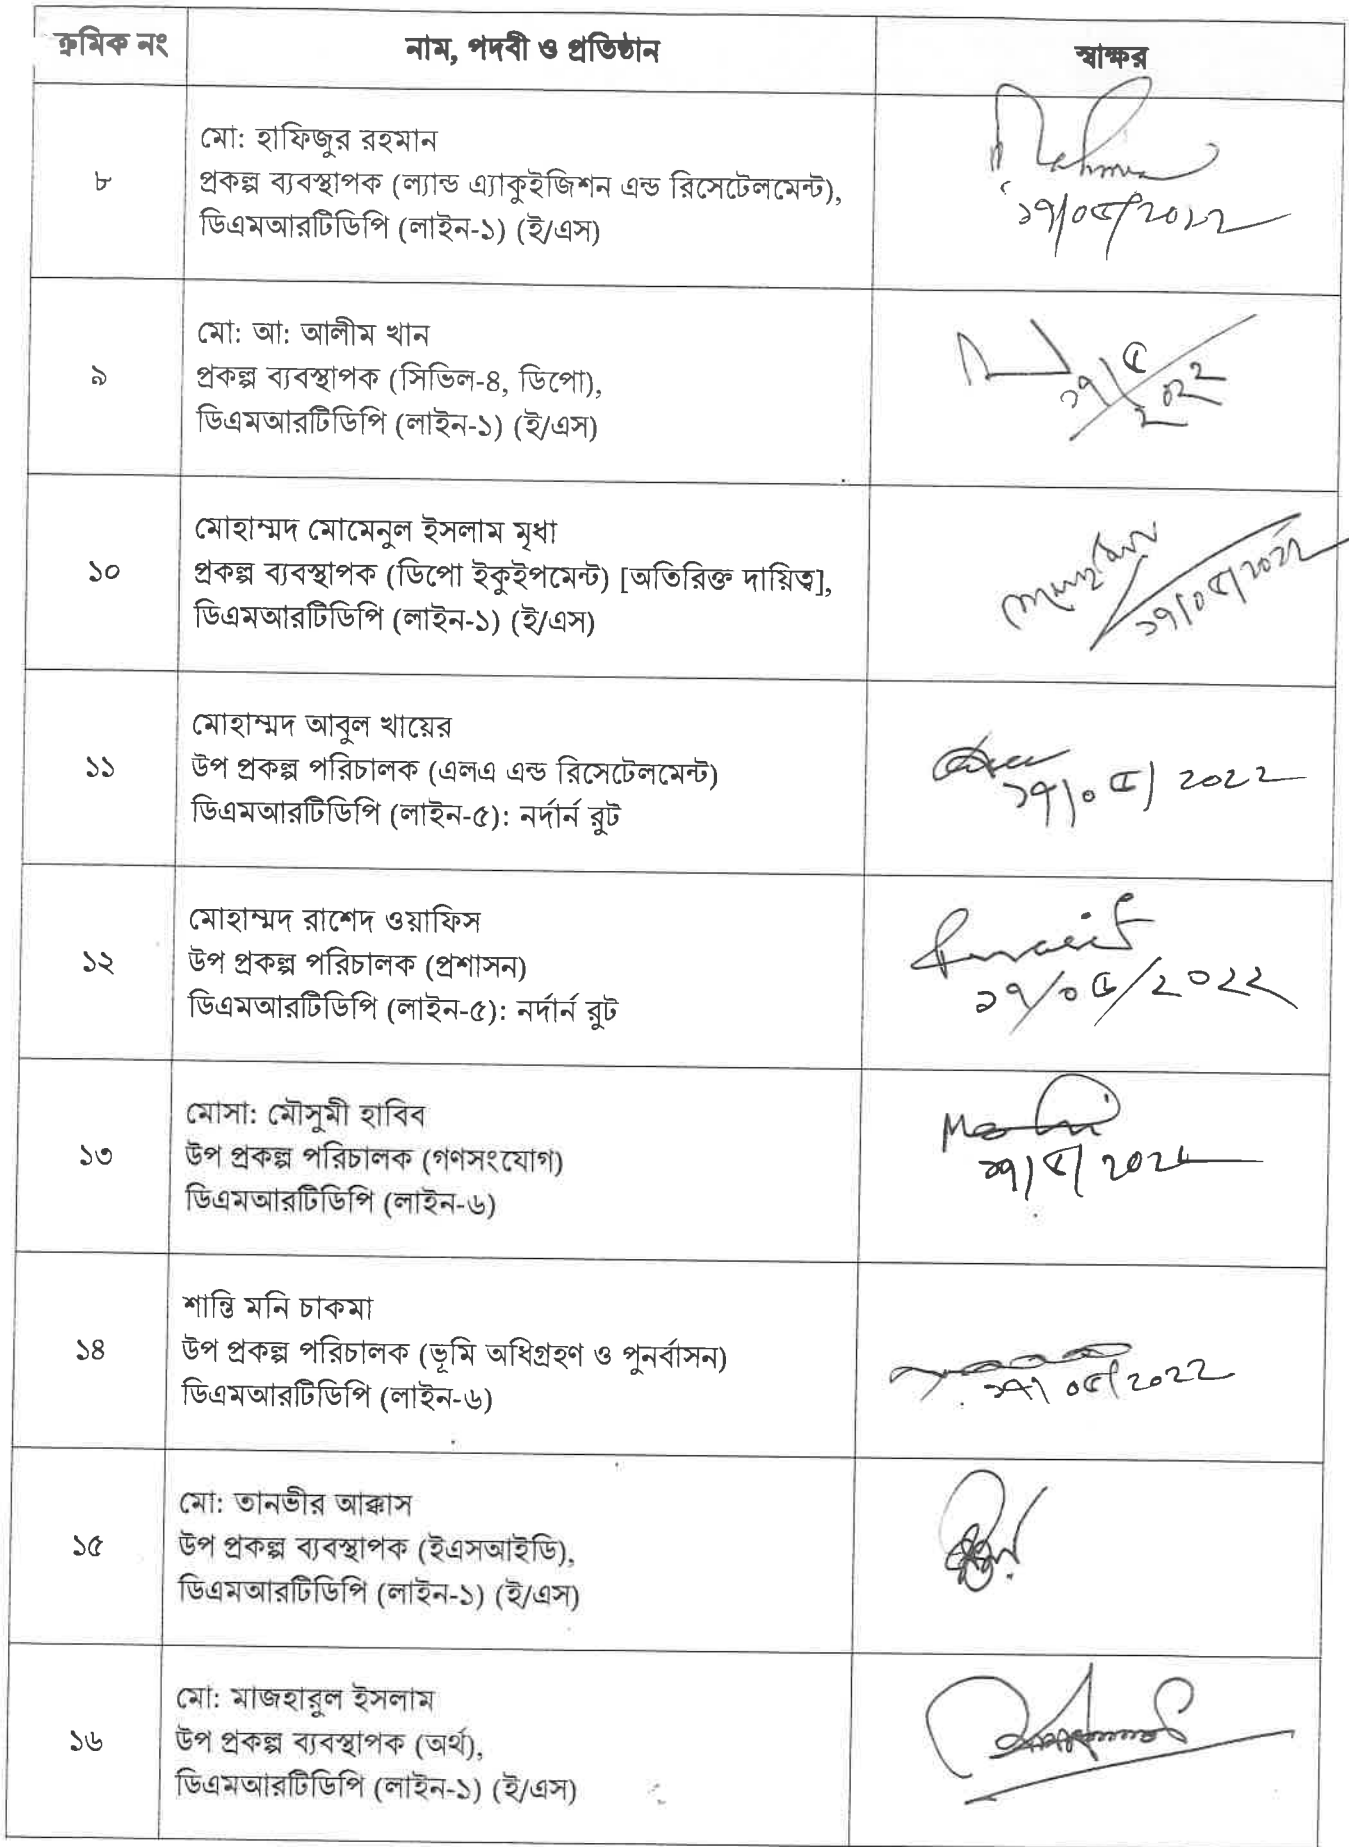 ক্রমিক নং
নাম, পদবী ও প্রতিষ্ঠান
স্বাক্ষর
৮
মো: হাফিজুর রহমান
প্রকল্প ব্যবস্থাপক (ল্যান্ড এ্যাকুইজিশন এন্ড রিসেটেলমেন্ট),
ডিএমআরটিডিপি (লাইন-১) (ই/এস)
১৭/০৫/২০২২
৯
মো: আ: আলীম খান
প্রকল্প ব্যবস্থাপক (সিভিল-৪, ডিপো),
ডিএমআরটিডিপি (লাইন-১) (ই/এস)
১৭/৫
২০২২
১০
মোহাম্মদ মোমেনুল ইসলাম মৃধা
প্রকল্প ব্যবস্থাপক (ডিপো ইকুইপমেন্ট) [অতিরিক্ত দায়িত্ব],
ডিএমআরটিডিপি (লাইন-১) (ই/এস)
১৭/০৫/২০২২
১১
মোহাম্মদ আবুল খায়ের
উপ প্রকল্প পরিচালক (এলএ এন্ড রিসেটেলমেন্ট)
ডিএমআরটিডিপি (লাইন-৫): নর্দার্ন রুট
১৭/০৫/২০২২
১২
মোহাম্মদ রাশেদ ওয়াফিস
উপ প্রকল্প পরিচালক (প্রশাসন)
ডিএমআরটিডিপি (লাইন-৫): নর্দার্ন রুট
১৭/০৫/২০২২
১৩
মোসা: মৌসুমী হাবিব
উপ প্রকল্প পরিচালক (গণসংযোগ)
ডিএমআরটিডিপি (লাইন-৬)
১৭/৫/২০২২
১৪
শান্তি মনি চাকমা
উপ প্রকল্প পরিচালক (ভূমি অধিগ্রহণ ও পুনর্বাসন)
ডিএমআরটিডিপি (লাইন-৬)
১৭/০৫/২০২২
১৫
মো: তানভীর আক্কাস
উপ প্রকল্প ব্যবস্থাপক (ইএসআইডি),
ডিএমআরটিডিপি (লাইন-১) (ই/এস)
১৬
মো: মাজহারুল ইসলাম
উপ প্রকল্প ব্যবস্থাপক (অর্থ),
ডিএমআরটিডিপি (লাইন-১) (ই/এস)